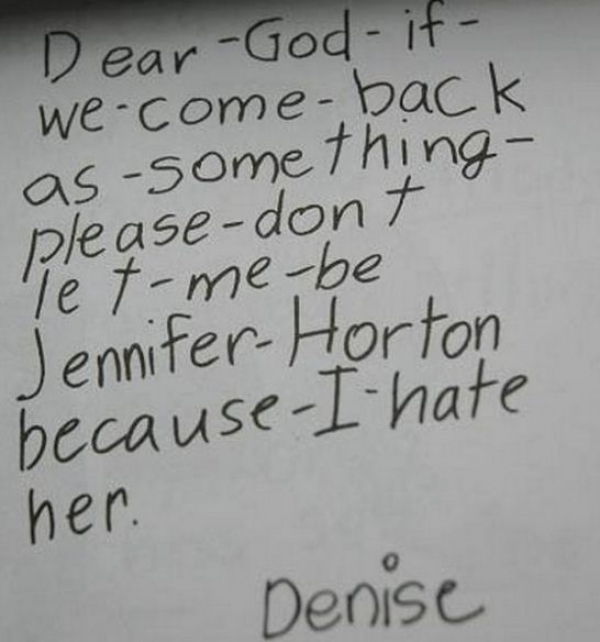 Dear-God-if-
we-come-back
as-something-
please-don t
let-me-be
Jennifer-Horton
because-I-hate
her.
Denise